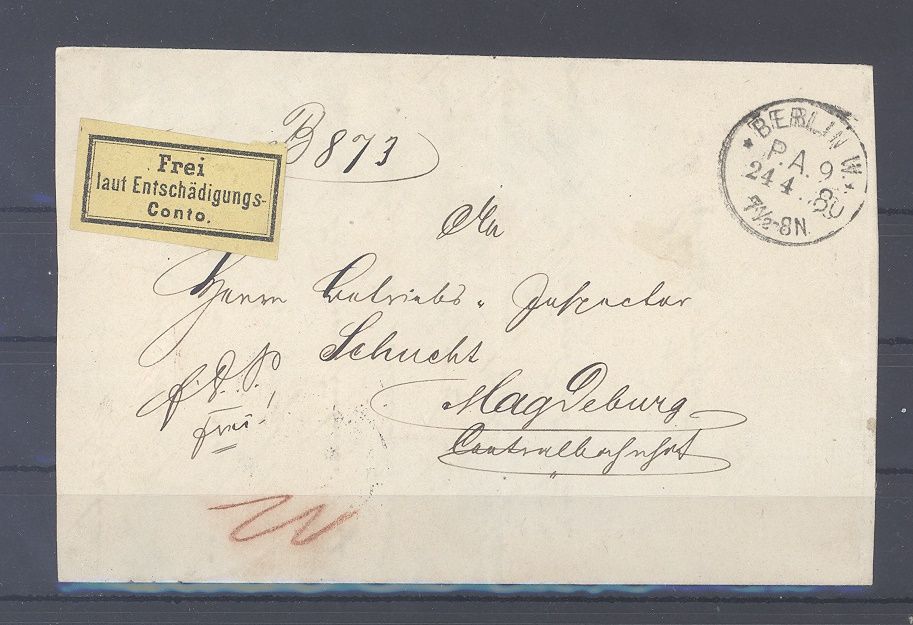 B 873
Frei
laut Entschädigungs-
Conto.
*BERLIN W.*
P.A. 9
24 4 80
7½-8N.
An
Herrn Betriebs-Inspector
Schucht
Magdeburg
Centralbahnhof
frei!